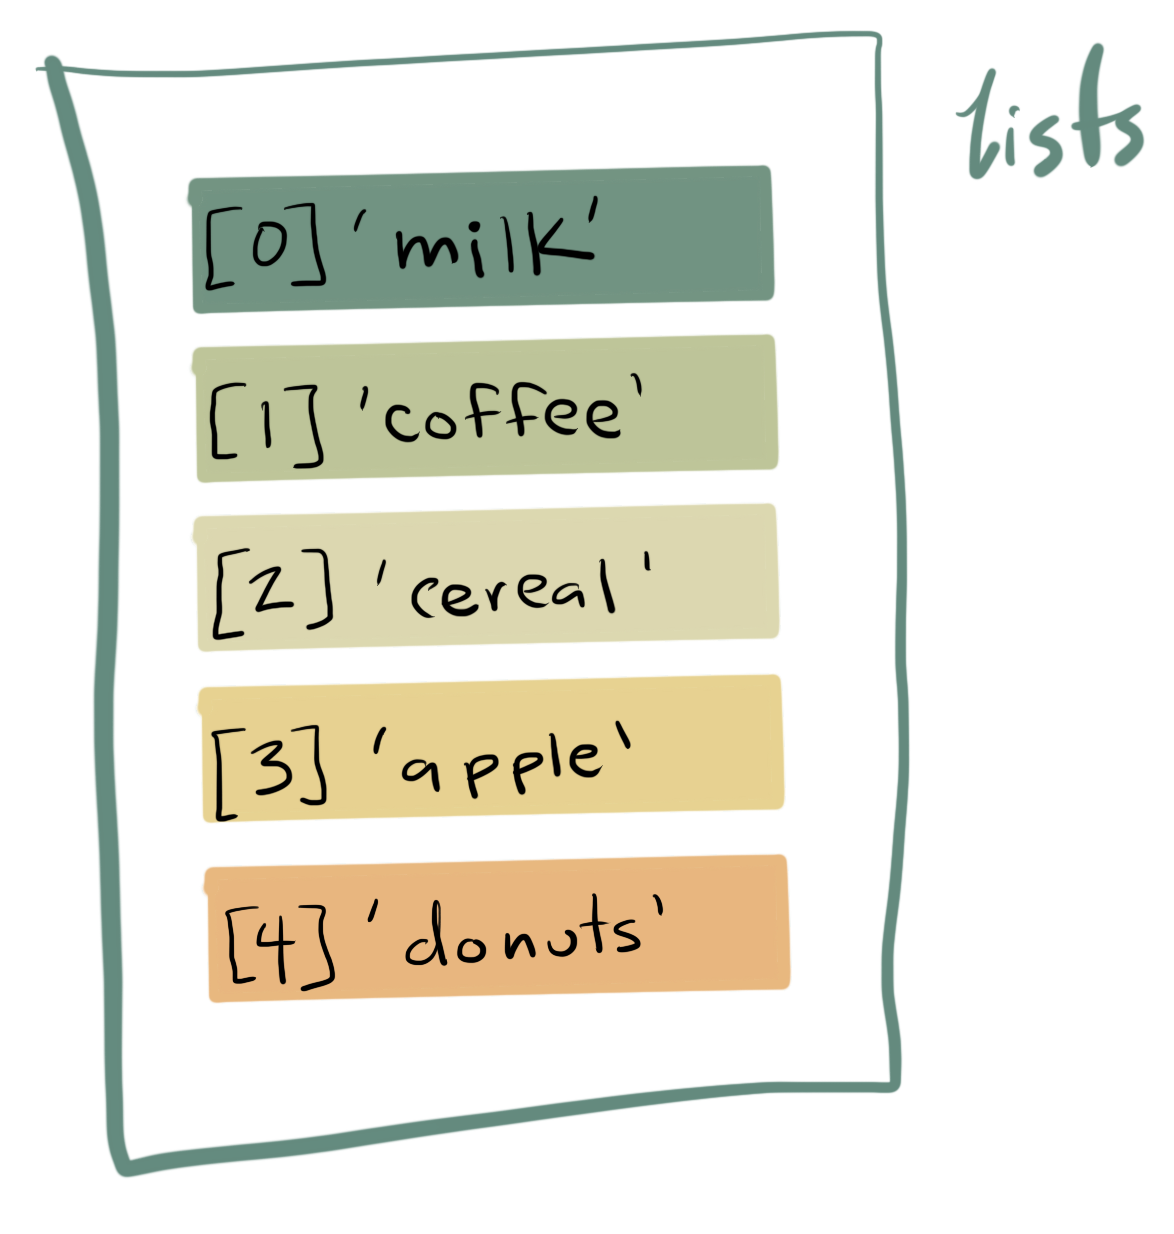 lists
[0] 'milk'
[1] 'coffee'
[2] 'cereal'
[3] 'apple'
[4] 'donuts'